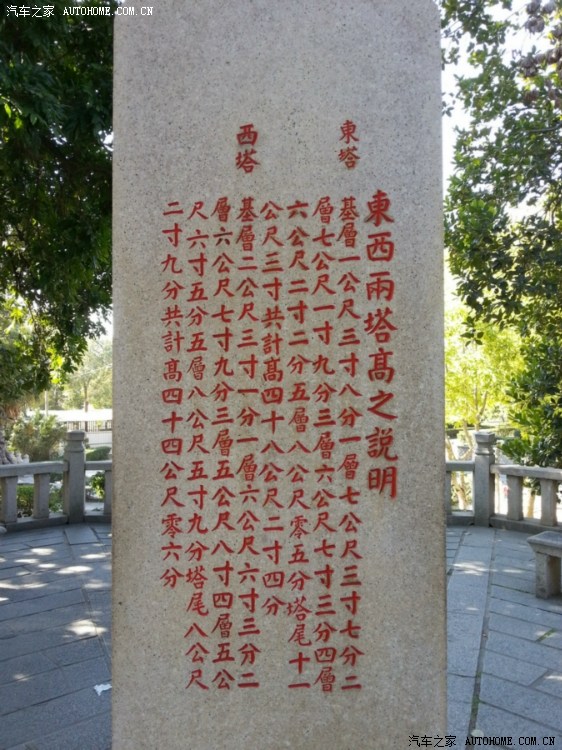 汽车之家 AUTOHOME.COM.CN
東西兩塔高之説明
東塔
基層一公尺三寸八分一層七公尺三寸七分二
層七公尺一寸九分三層六公尺七寸三分四層
六公尺二寸二分五層八公尺零五分塔尾十一
公尺三寸共計高四十八公尺二寸四分
西塔
基層二公尺三寸一分一層六公尺六寸三分二
層六公尺七寸九分三層五公尺八寸四層五公
尺六寸五分五層八公尺五寸九分塔尾八公尺
二寸九分共計高四十四公尺零六分
汽车之家 AUTOHOME.COM.CN